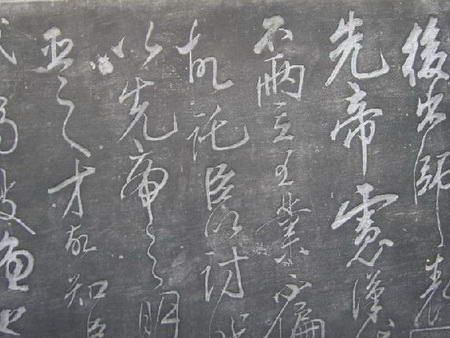 後出師表
先帝慮漢
不兩立王業不偏
故託臣以討
以先帝之明
臣之才故知臣